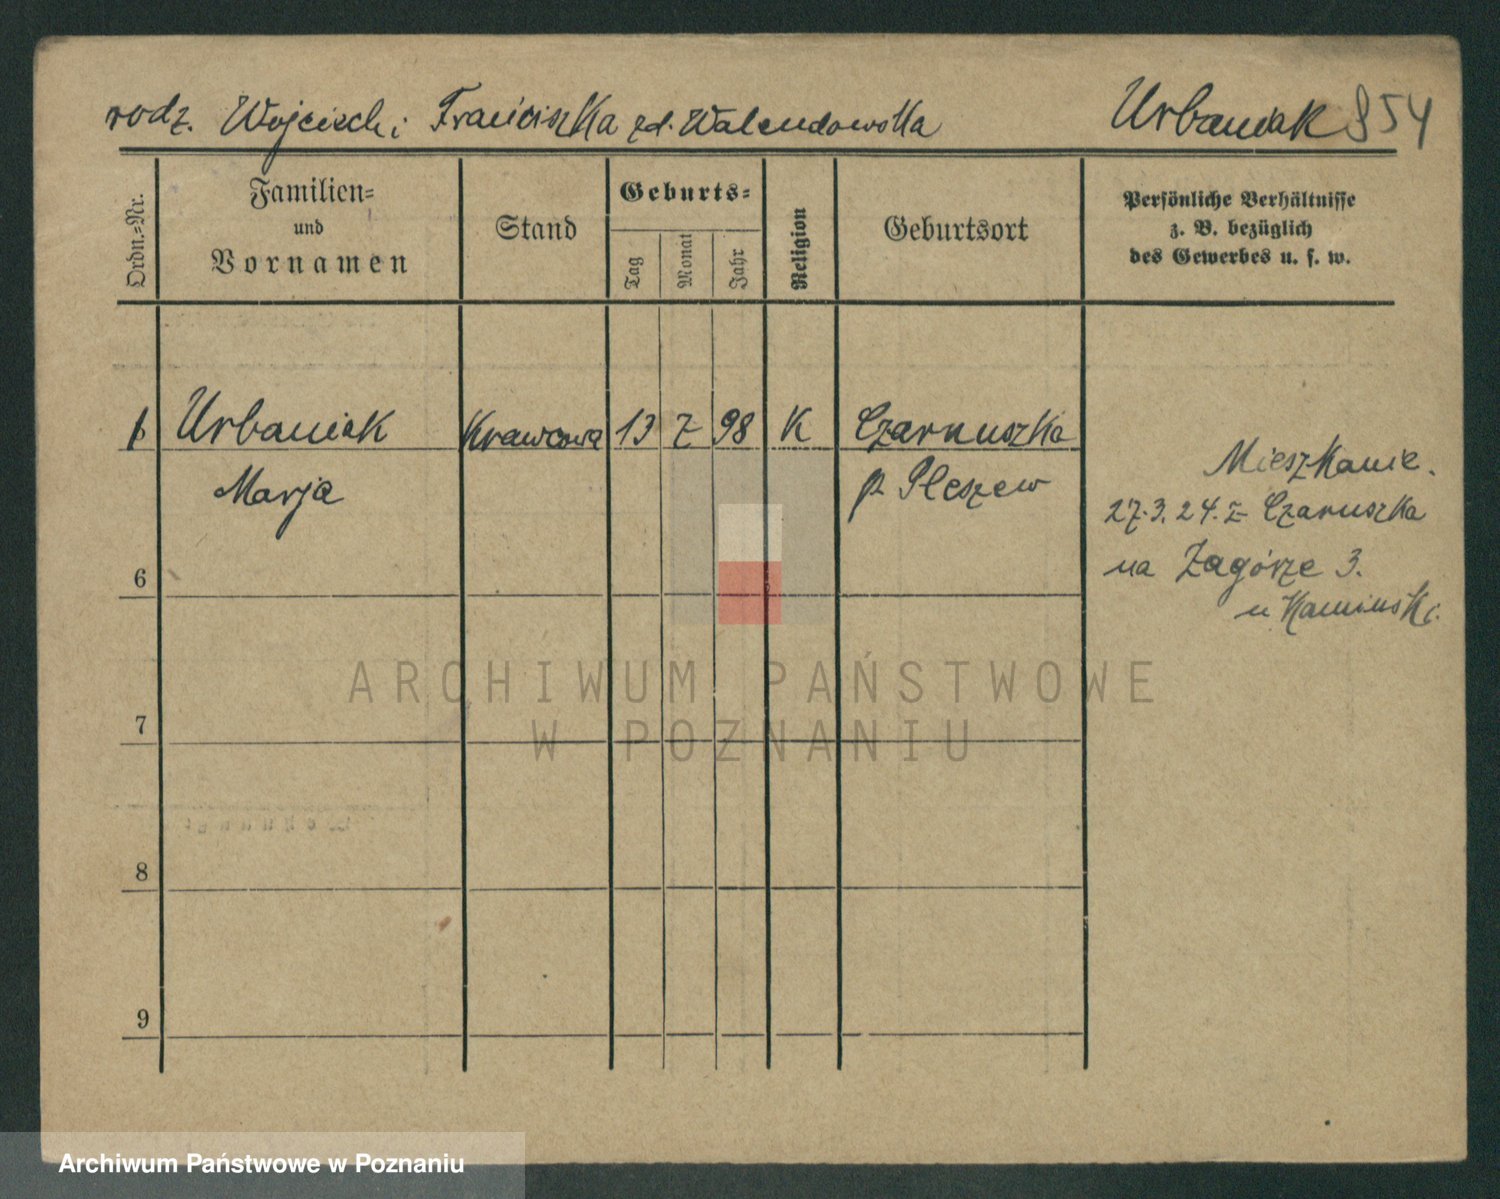 rodz. Wojciech i Franciszka zd. Walendowska Urbaniak 854
Ordn.-Nr.
Familien-
und
Vornamen
Stand
Geburts-
Tag
Monat
Jahr
Religion
Geburtsort
Persönliche Verhältnisse
z. B. bezüglich
des Gewerbes u. s. w.
1 Urbaniak Krawcowa 13 7 98 K Czarnuszka
Marja p. Pleszew
Mieszkanie.
27.3.24. z Czarnuszka
na Zagórze 3.
u Kamiński.
6
7
8
9
ARCHIWUM PAŃSTWOWE
W POZNANIU
Archiwum Państwowe w Poznaniu